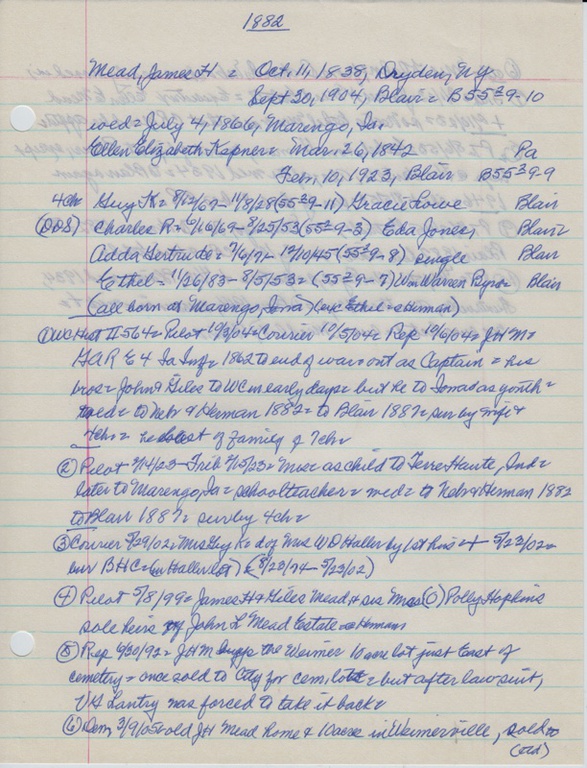 1882
Mead, James H = Oct. 11, 1838, Dryden, NY
Sept 30, 1904, Blair = B 55 9-10
wed = July 4, 1866, Marengo, Ia.
Ellen Elizabeth Kapner = Mar. 26, 1842 Pa
Feb. 10, 1923, Blair B 55 9-9
4ch = Guy K = 8/12/69 - 11/8/28 (55 9-11) Gracie Lowe Blair
(DDS) Charles R = 6/16/69 - 8/25/53 (55 9-3) Eda Jones, Blair =
Adda Gertrude = 7/6/71 - 12/10/45 (55 9-8) single Blair
Ethel = 11/26/83 - 8/5/53 = (55 9-7) Wm Warren Byro= Blair
(all born at Marengo, Iowa) (exc Ethel = Herman)
① WC Hist II 564 = Pilot 10/5/04 = Courier 10/5/04 = Rep 10/6/04 = JHM =
GAR E 4 Ia Inf = 1862 to end of war = out as Captain = his
bros = John & Giles to WC in early days = but he to Iowa as youth =
wed = to Nebr & Herman 1882 = to Blair 1887 = sur by wife &
4ch = he oldest of family of 7ch =
② Pilot 2/14/23 - Trib 2/15/23 = Mrs as child to Terre Haute, Ind =
later to Marengo, Ia = school teacher = wed = to Nebr & Herman 1882
to Blair 1887 = sur by 4ch =
③ Courier 5/29/02, Mrs Guy K = d of Mrs W D Haller by 1st hus = + 5/23/02 =
bur BHC = (on Haller lot) (8/23/74 - 5/23/02)
④ Pilot 5/8/99 = James H & Giles Mead & sis Mrs (O) Polly Hopkins
sole heirs of John L Mead Estate = Herman
⑤ Rep 6/30/92 = JHM buys the Weimer 10 acre lot just East of
cemetery = once sold to City for cem lots = but after law suit,
VG Lantry was forced to take it back =
⑥ Dem, 3/9/05 = old JH Mead home & 10 acre in Weimerville, sold to
(ovr)